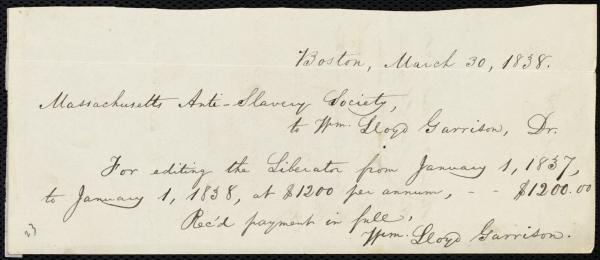 Boston, March 30, 1838.
Massachusetts Anti-Slavery Society,
to Wm. Lloyd Garrison, Dr.
For editing the Liberator from January 1, 1837,
to January 1, 1838, at $1200 per annum, - - $1200.00
Rec'd payment in full,
Wm. Lloyd Garrison.
23